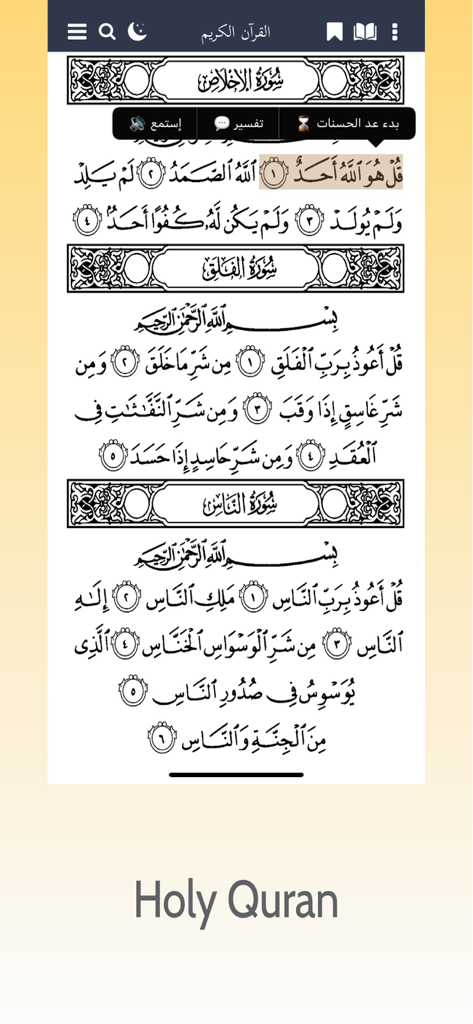 القرآن الكريم
سُورَةُ الإِخْلَاصِ
بدء عد الحسنات ⏳ تفسير 💬 إستمع 🔊
قُلْ هُوَ ٱللَّهُ أَحَدٌ ١ ٱللَّهُ ٱلصَّمَدُ ٢ لَمْ يَلِدْ
وَلَمْ يُولَدْ ٣ وَلَمْ يَكُن لَّهُۥ كُفُوًا أَحَدٌۢ ٤
سُورَةُ الفَلَقِ
بِسْمِ ٱللَّهِ ٱلرَّحْمَٰنِ ٱلرَّحِيمِ
قُلْ أَعُوذُ بِرَبِّ ٱلْفَلَقِ ١ مِن شَرِّ مَا خَلَقَ ٢ وَمِن
شَرِّ غَاسِقٍ إِذَا وَقَبَ ٣ وَمِن شَرِّ ٱلنَّفَّٰثَٰتِ فِى
ٱلْعُقَدِ ٤ وَمِن شَرِّ حَاسِدٍ إِذَا حَسَدَ ٥
سُورَةُ النَّاسِ
بِسْمِ ٱللَّهِ ٱلرَّحْمَٰنِ ٱلرَّحِيمِ
قُلْ أَعُوذُ بِرَبِّ ٱلنَّاسِ ١ مَلِكِ ٱلنَّاسِ ٢ إِلَٰهِ
ٱلنَّاسِ ٣ مِن شَرِّ ٱلْوَسْوَاسِ ٱلْخَنَّاسِ ٤ ٱلَّذِى
يُوَسْوِسُ فِى صُدُورِ ٱلنَّاسِ ٥
مِنَ ٱلْجِنَّةِ وَٱلنَّاسِ ٦
Holy Quran